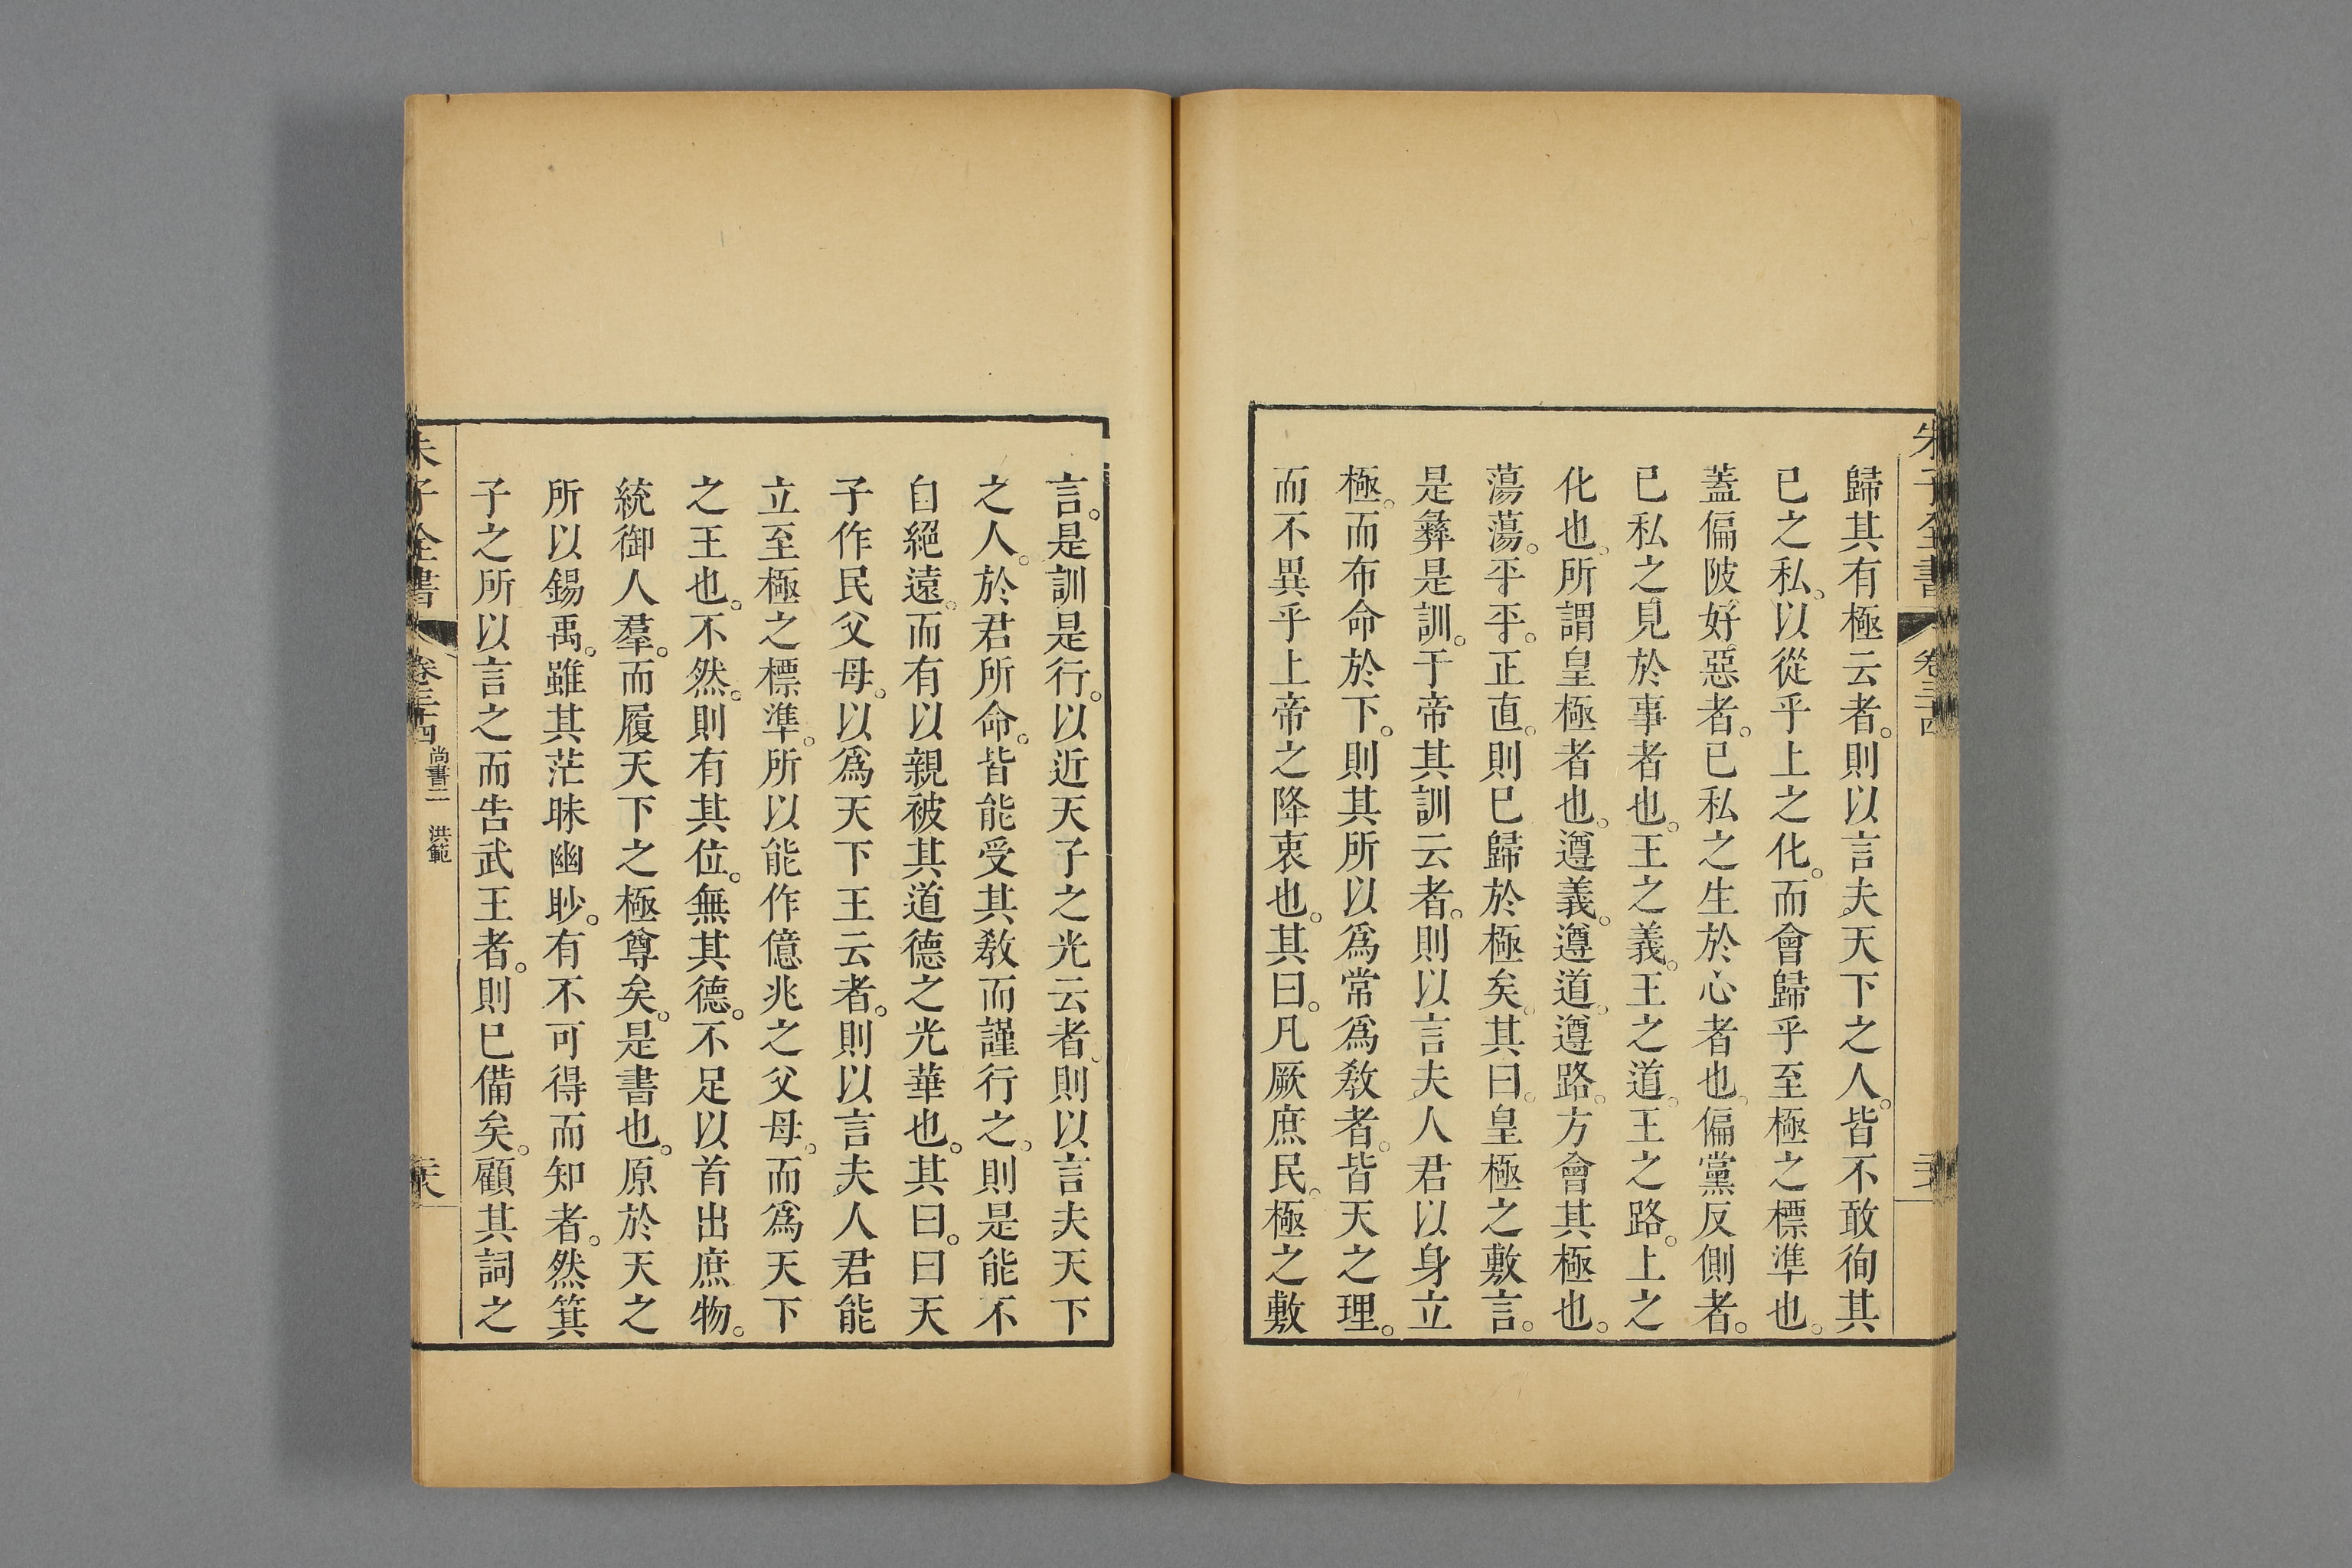 朱子全書 卷三十四
歸其有極云者。則以言夫天下之人。皆不敢徇其
已之私。以從乎上之化。而會歸乎至極之標準也。
蓋偏陂。好惡者。已私之生於心者也。偏黨反側者。
已私之見於事者也。王之義。王之道。王之路。上之
化也。所謂皇極者也。遵義。遵道。遵路。方會其極也。
蕩蕩。平平。正直。則已歸於極矣。其曰。皇極之敷言。
是彝是訓。于帝其訓云者。則以言夫人君以身立
極。而布命於下。則其所以爲常爲敎者。皆天之理。
而不異乎上帝之降衷也。其曰。凡厥庶民。極之敷
言。是訓是行。以近天子之光云者。則以言夫天下
之人。於君所命。皆能受其敎而謹行之。則是能不
自絕遠。而有以親被其道德之光華也。其曰。曰天
子作民父母。以爲天下王云者。則以言夫人君能
立至極之標準。所以能作億兆之父母。而爲天下
之王也。不然。則有其位。無其德。不足以首出庶物。
統御人羣。而履天下之極尊矣。是書也。原於天之
所以錫禹。雖其茫昧幽眇。有不可得而知者。然箕
子之所以言之而告武王者。則已備矣。顧其詞之
朱子全書 卷三十四 尚書二 洪範